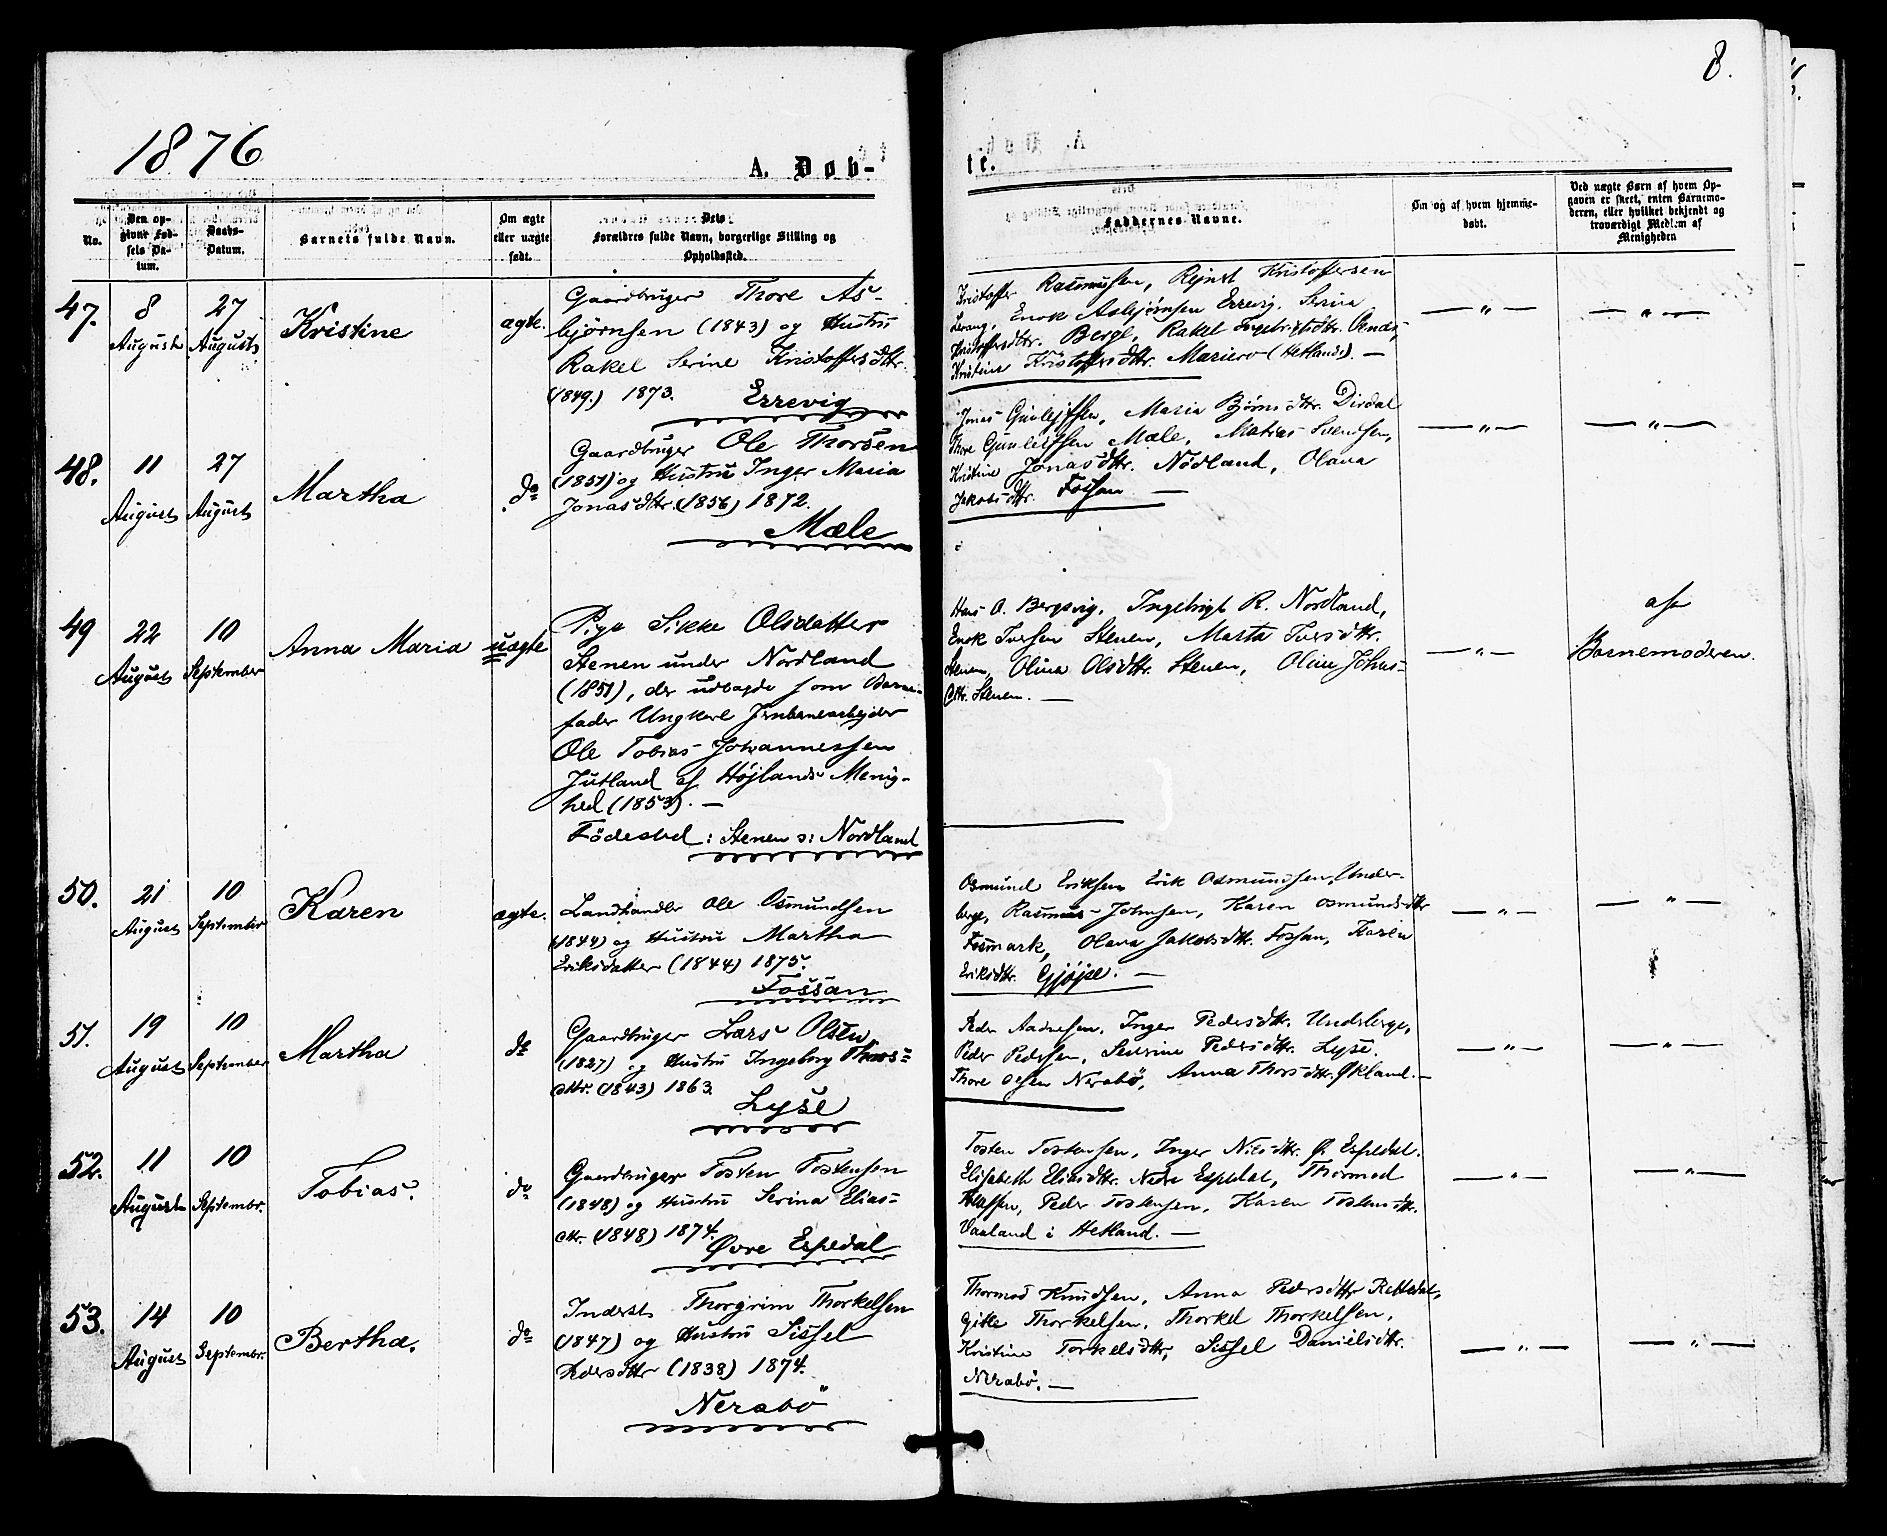 8.
1876
A. Døb-
te.
No.
Den op-
givne Fød-
sels Da-
tum.
Daabs-
Datum.
Barnets fulde Navn.
Om ægte
eller uægte
født.
Dets
Forældres fulde Navn, borgerlige Stilling og
Opholdssted.
Faddernes Navne.
Om og af hvem hjemme-
døbt.
Ved uægte Børn af hvem Op-
gaven er skeet, enten Barnemo-
deren, eller hvilket bekjendt og
troværdigt Medlem af
Menigheden
47.
8
August
27
August
Kristine
ægte.
Gaardbruger Thore As-
bjørnsen (1843) og Hustru
Rakel Serine Kristoffersdttr.
(1849.) 1873.
Errevig
Kristoffer Rasmussen, Rejnert Kristoffersen
Lerang, Enok Asbjørnsen Errevig, Serina
Kristoffersdttr. Berge, Rakel Ingebrigtsdttr.
Kristine Kristoffersdttr. Mariero (Hetland). —
— " —
— " —
48.
11
August
27
August
Martha
do
Gaardbruger Ole Thorsen
(1851) og Hustru Inger Maria
Jonasdttr. (1856) 1872.
Mæle
Jonas Gunlejfsen, Maria Bjørnsdttr. Dirdal
Thore Gunlejfsen Mæle, Mathias Svendsen,
Kristine Jonasdttr. Nödland, Olava
Jakobsdttr. Fossan —
— " —
— " —
49
22
August
10
September
Anna Maria
uægte
Pige Sikke Olsdatter
Stenen under Nordland
(1851), der udlagde som Barne-
fader Ungkarl Jernbanearbejder
Ole Tobias Johannessen
Jutland af Højlands Menig-
hed (1853). —
Födested: Stenen u: Nordland
Hans O. Bergsvig, Ingebrigt R. Nordland,
Enok Iversen Stenen, Marta Iversdttr.
Stenen, Olina Olsdttr. Stenen, Oline Johns-
dttr. Stenen. —
— " —
af
Barnemoderen.
50.
21
August
10
September
Karen
ægte.
Landhandler Ole Osmundsen
(1844) og Hustru Martha
Eriksdatter (1844) 1875.
Fossan
Osmund Eriksen, Erik Osmundsen, Under-
berge, Rasmus Johnsen, Karen Osmundsdttr
Fosmark, Olava Jakobsdttr. Fossan, Karen
Eriksdttr. Gjøjse. —
— " —
— " —
51.
19
August
10
September
Martha
do
Gaardbruger Lars Olsen
(1827) og Hustru Ingeborg Thors-
dttr. (1843) 1863.
Lyse
Peder Aadnesen, Inger Pedersdttr. Underberge,
Peder Pedersen, Severine Pedersdttr. Lyse,
Thore Olsen Nerabö, Anna Thorsdttr. Økland. —
— " —
— " —
52.
11
August
10
Septembr.
Tobias.
do
Gaardbruger Tosten Tostensen
(1848) og Hustru Serina Elias-
dttr. (1848) 1874.
Øvre Espedal
Tosten Tostensen, Inger Nilsdttr. Ø. Espedal.
Elisabeth Eliasdttr. Nedre Espedal, Thormod
Peder Tostensen, Karen Tostensdttr.
Vaaland i Hetland. —
— " —
— " —
53.
14
August
10
Septembr.
Bertha.
do
Inderst Thorgrim Thorkelsen
(1847) og Hustru Sissel
Pedersdttr (1838) 1874.
Nerabö
Thormod Knudsen, Anna Pedersdttr Rettedal,
Gitle Thorkelsen, Thorkel Thorkelsen,
Kristine Torkelsdttr, Sissel Danielsdttr.
Nerabö. —
— " —
— " —